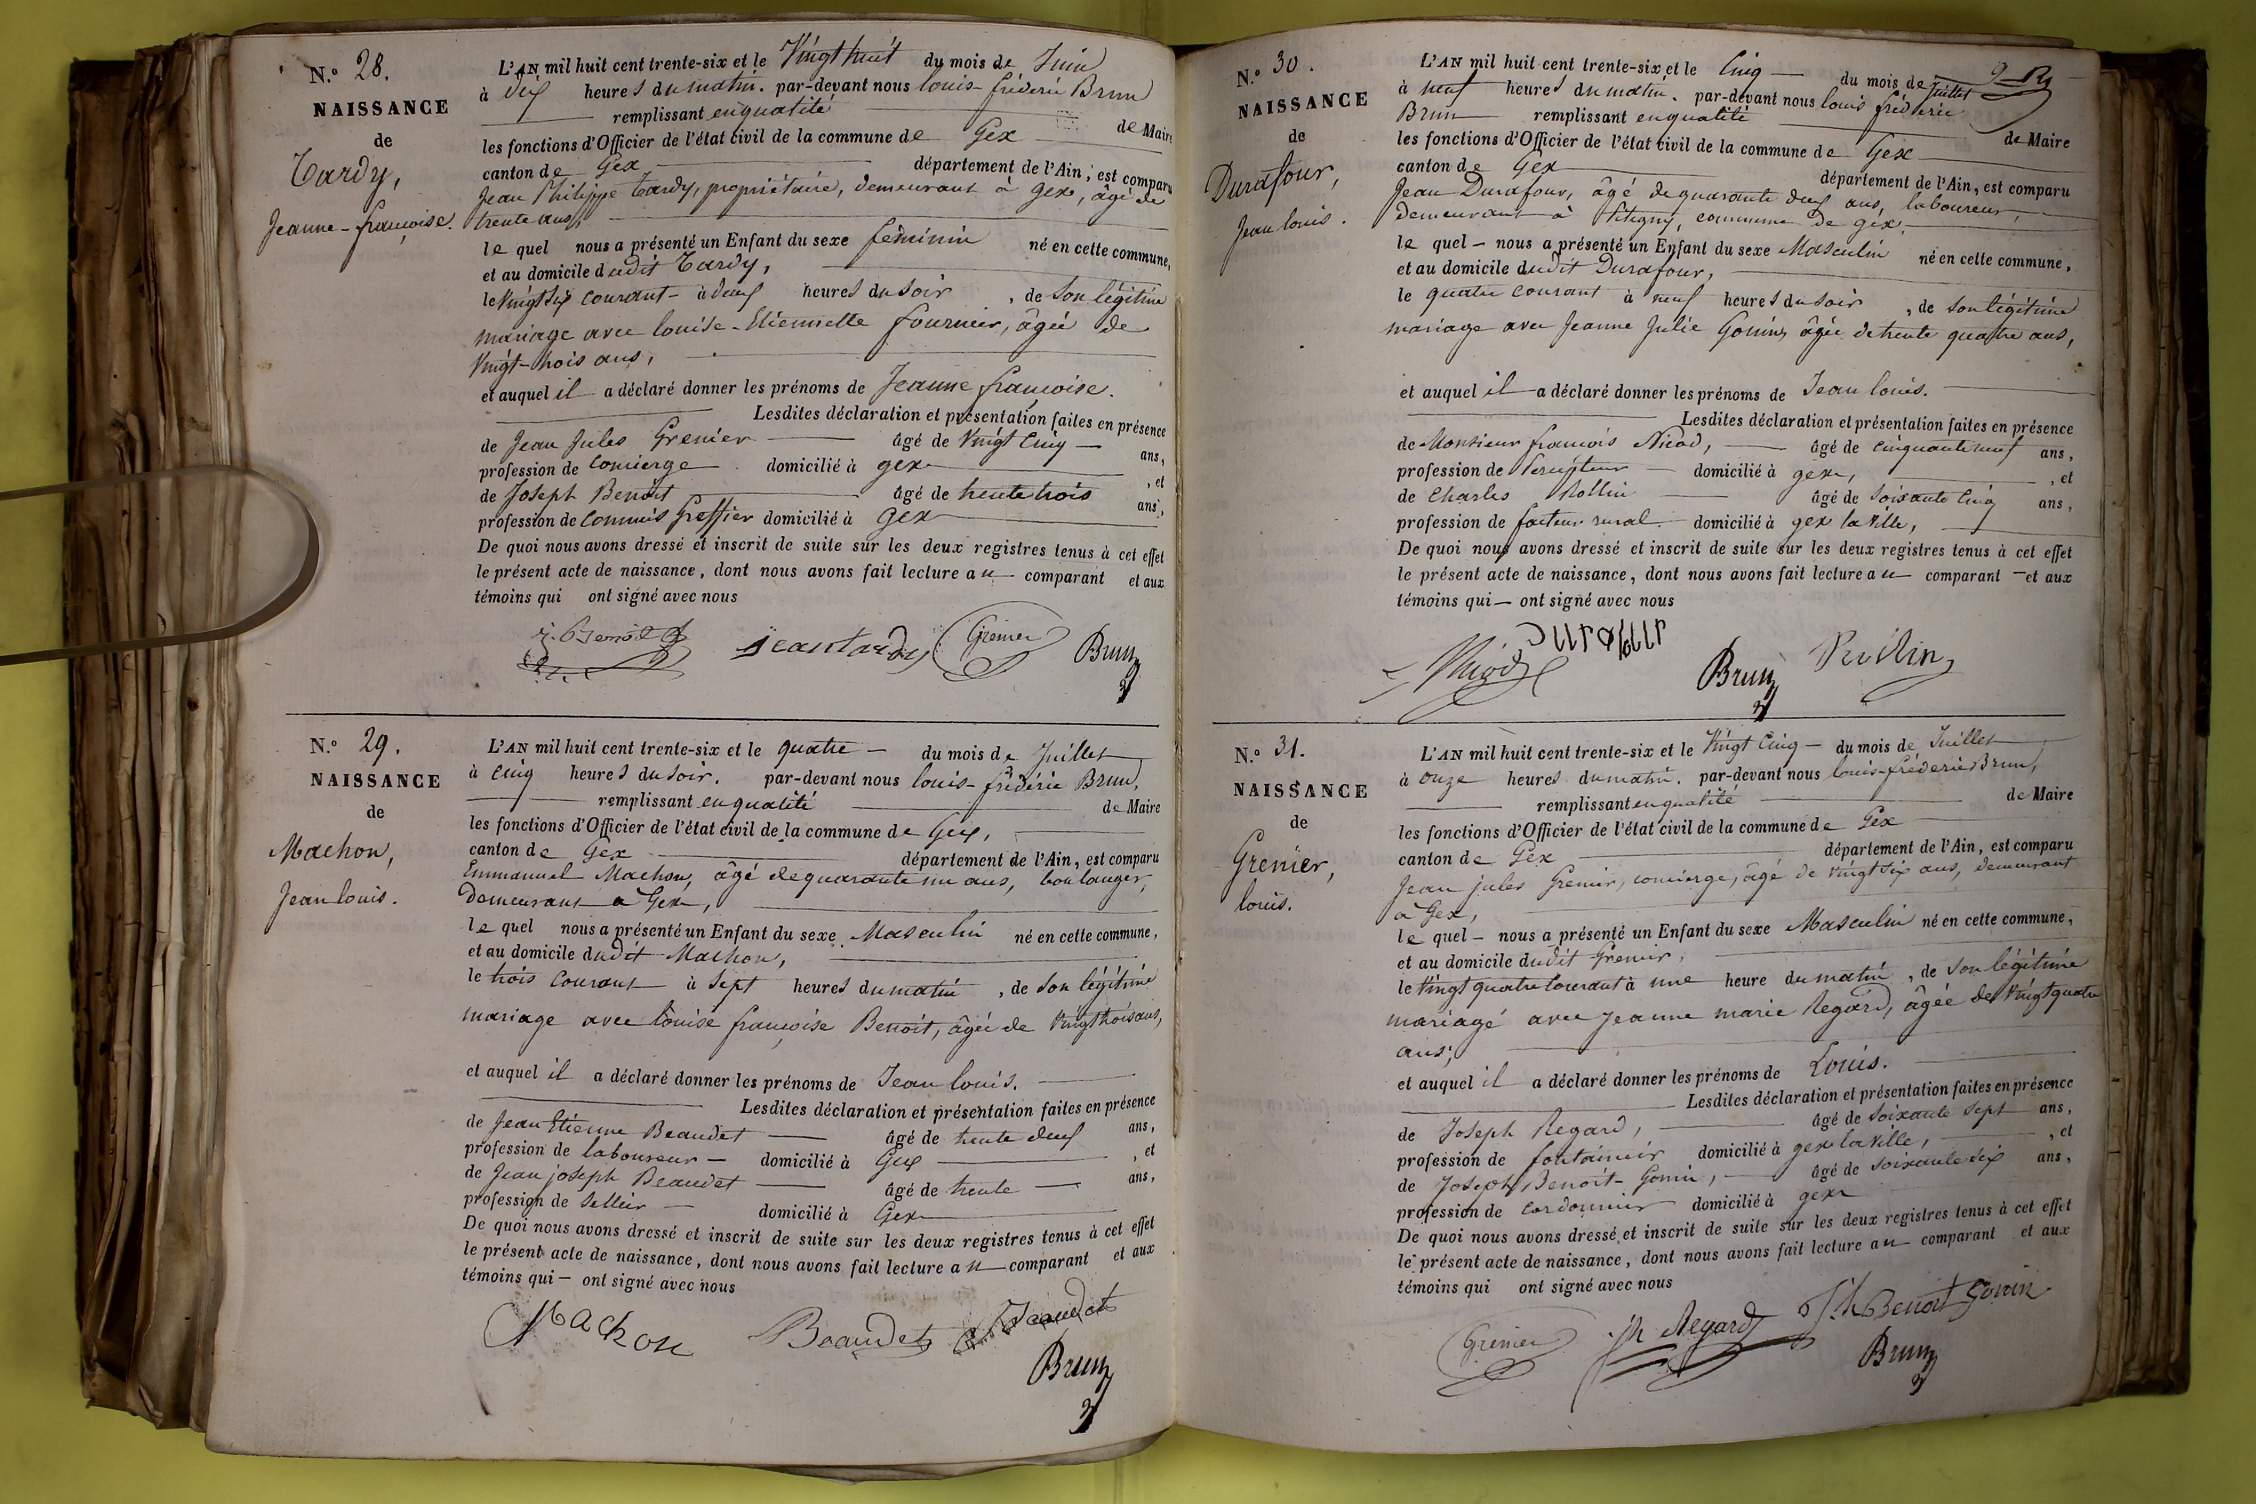 N.° 28.
NAISSANCE
de
Tardy,
Jeanne-françoise.
L'AN mil huit cent trente-six et le Vingt huit du mois de Juin
à dix heures du matin. par-devant nous louis-fréderic Brun
remplissant en qualité de Maire
les fonctions d'Officier de l'état civil de la commune de Gex
canton de Gex département de l'Ain, est comparu
Jean Philippe Tardy, propriétaire, demeurant à gex, âgé de
trente ans,
le quel nous a présenté un Enfant du sexe féminin né en cette commune,
et au domicile dudit Tardy,
le Vingt six courant à deux heures du soir, de son légitime
mariage avec louise-Etiennette fournier, âgée de
Vingt-trois ans,
et auquel il a déclaré donner les prénoms de Jeanne françoise.
Lesdites déclaration et présentation faites en présence
de Jean Jules Grenier âgé de Vingt cinq ans,
profession de Concierge domicilié à gex, et
de Joseph Benoit âgé de trente trois ans,
profession de commis Greffier domicilié à Gex
De quoi nous avons dressé et inscrit de suite sur les deux registres tenus à cet effet
le présent acte de naissance, dont nous avons fait lecture au comparant et aux
témoins qui ont signé avec nous
j. Benoit jean tardy Grenier Brun
N.° 29.
NAISSANCE
de
Machon,
Jean louis.
L'AN mil huit cent trente-six et le quatre du mois de Juillet
à cinq heures du soir. par-devant nous louis-fréderic Brun,
remplissant en qualité de Maire
les fonctions d'Officier de l'état civil de la commune de Gex,
canton de Gex département de l'Ain, est comparu
Emmanuel Machon, âgé de quarante un ans, boulanger,
demeurant à Gex,
le quel nous a présenté un Enfant du sexe Masculin né en cette commune,
et au domicile dudit Machon,
le trois courant à sept heures du matin, de son légitime
mariage avec louise françoise Benoit, âgée de Vingt trois ans,
et auquel il a déclaré donner les prénoms de Jean louis.
Lesdites déclaration et présentation faites en présence
de Jean Etienne Beaudet âgé de trente deux ans,
profession de laboureur domicilié à Gex, et
de Jean joseph Beaudet âgé de trente ans,
profession de Sellier domicilié à Gex
De quoi nous avons dressé et inscrit de suite sur les deux registres tenus à cet effet
le présent acte de naissance, dont nous avons fait lecture au comparant et aux
témoins qui ont signé avec nous
Machon Beaudet Beaudet
Brun
N.° 30.
NAISSANCE
de
Durafour,
Jean louis.
L'AN mil huit cent trente-six et le Cinq du mois de Juillet
à neuf heures du matin. par-devant nous louis fréderic
Brun remplissant en qualité de Maire
les fonctions d'Officier de l'état civil de la commune de Gex
canton de Gex département de l'Ain, est comparu
Jean Durafour, âgé de quarante deux ans, laboureur,
demeurant à Pitegny, commune de gex.
le quel nous a présenté un Enfant du sexe Masculin né en cette commune,
et au domicile dudit Durafour,
le quatre courant à neuf heures du soir, de son légitime
mariage avec Jeanne Julie Gonin, âgée de trente quatre ans,
et auquel il a déclaré donner les prénoms de Jean louis.
Lesdites déclaration et présentation faites en présence
de Monsieur françois Nicod, âgé de cinquante neuf ans,
profession de Percepteur domicilié à gex, et
de Charles Rollin âgé de soixante cinq ans,
profession de facteur rural domicilié à gex la ville,
De quoi nous avons dressé et inscrit de suite sur les deux registres tenus à cet effet
le présent acte de naissance, dont nous avons fait lecture au comparant et aux
témoins qui ont signé avec nous
Nicod Brun
N.° 31.
NAISSANCE
de
Grenier,
louis.
L'AN mil huit cent trente-six et le Vingt Cinq du mois de Juillet
à onze heures du matin. par-devant nous louis-fréderic Brun,
remplissant en qualité de Maire
les fonctions d'Officier de l'état civil de la commune de Gex
canton de Gex département de l'Ain, est comparu
Jean jules Grenier, concierge, âgé de vingt six ans, demeurant
à Gex,
le quel nous a présenté un Enfant du sexe Masculin né en cette commune,
et au domicile dudit Grenier,
le Vingt quatre courant à une heure du matin, de son légitime
mariage avec Jeanne marie Regard, âgée de Vingt quatre
ans,
et auquel il a déclaré donner les prénoms de Louis.
Lesdites déclaration et présentation faites en présence
de Joseph Regard, âgé de soixante sept ans,
profession de fontainier domicilié à gex la ville, et
de Joseph Benoit-Gonin, âgé de soixante dix ans,
profession de cordonnier domicilié à gex
De quoi nous avons dressé et inscrit de suite sur les deux registres tenus à cet effet
le présent acte de naissance, dont nous avons fait lecture au comparant et aux
témoins qui ont signé avec nous
Grenier jh Regard Jh Benoit Gonin
Brun